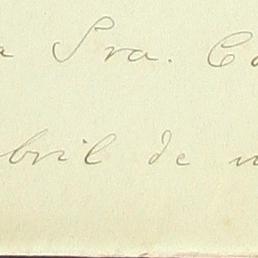 a Sra. Ca
bril de